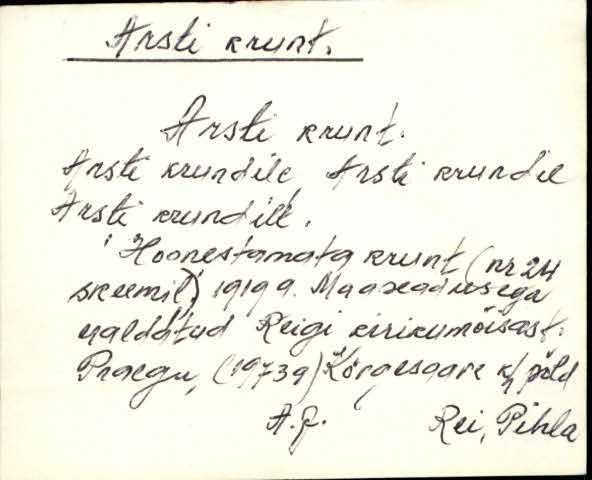 Arsti krunt.
Arsti krunt.
Arsti krundile, Arsti krundil
Arsti krundilt.
Hoonestamata krunt (nr 24
skeemil) 1919 a. Maaseadusega
eraldatud Reigi kirikumõisast.
Praegu, (1973a) Kõrgesaare k/ põld
A.J. Rei, Pihla